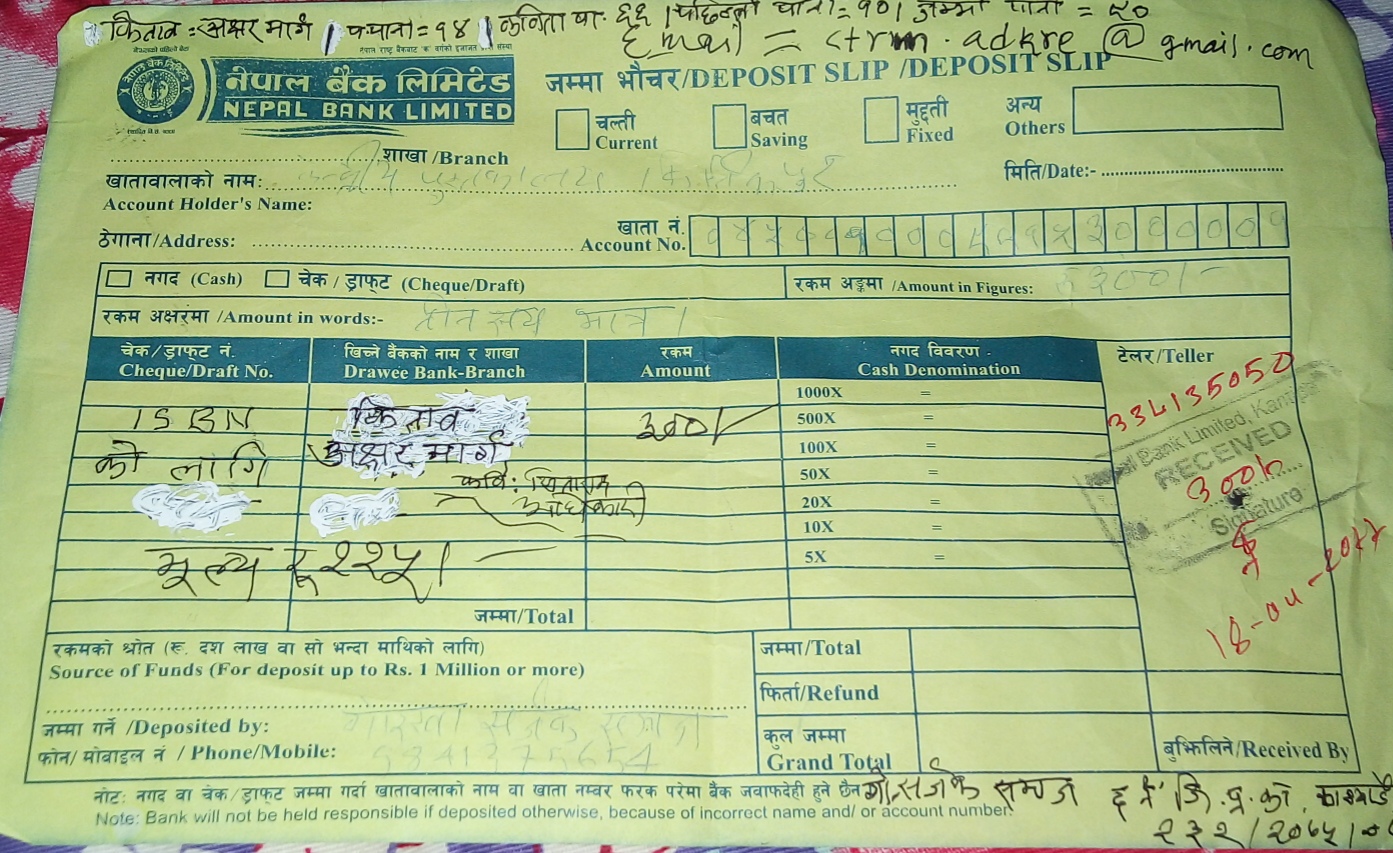 किताब : अक्षर मार्ग | पाना = १४ | कविता पाः ६६ | पाना = १० | जम्मा पाना = ९०
Email = ctrm.adkre@gmail.com
नेपालको पहिलो बैंक
नेपाल राष्ट्र बैंकबाट 'क' वर्गको इजाजत प्राप्त संस्था
नेपाल बैंक लिमिटेड
NEPAL BANK LIMITED
जम्मा भौचर/DEPOSIT SLIP /DEPOSIT SLIP
चल्ती
Current
बचत
Saving
मुद्दती
Fixed
अन्य
Others
शाखा /Branch
मिति/Date:-
खातावालाको नाम: केन्द्रीय पुस्तकालय कीर्तिपुर
Account Holder's Name:
ठेगाना/Address:
खाता नं.
Account No.
नगद (Cash) चेक / ड्राफ्ट (Cheque/Draft)
रकम अङ्कमा /Amount in Figures: 300/-
रकम अक्षरमा /Amount in words:- तीन सय मात्र।
चेक/ड्राफ्ट नं.
Cheque/Draft No.
खिच्ने बैंकको नाम र शाखा
Drawee Bank-Branch
रकम
Amount
नगद विवरण
Cash Denomination
टेलर/Teller
1000X =
500X =
100X =
50X =
20X =
10X =
5X =
ISBN
को लागि
किताब
अक्षर मार्ग
कवि: सिताराम
अधिकारी
300/
मूल्य रू २२५।-
334135050
Bank Limited,
RECEIVED
300/-
Signature
जम्मा/Total
रकमको श्रोत (रू. दश लाख वा सो भन्दा माथिको लागि)
Source of Funds (For deposit up to Rs. 1 Million or more)
जम्मा/Total
फिर्ता/Refund
कुल जम्मा
Grand Total
जम्मा गर्ने /Deposited by: गोरखा सर्जक समाज
फोन/ मोबाइल नं / Phone/Mobile:
बुझिलिने/Received By
नोट: नगद वा चेक/ड्राफ्ट जम्मा गर्दा खातावालाको नाम वा खाता नम्बर फरक परेमा बैंक जवाफदेही हुने छैन
Note: Bank will not be held responsible if deposited otherwise, because of incorrect name and/ or account number.
गो.सर्जक समाज द नं जि.प्र.का.